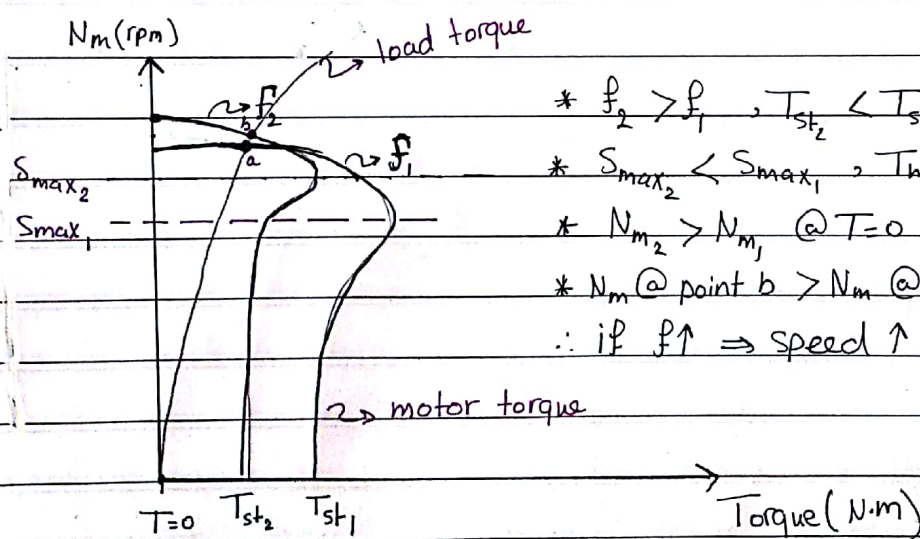 Nm (rpm)
load torque
f2
b
a
f1
Smax2
Smax1
motor torque
T=0
Tst2
Tst1
Torque (N.m)
* f2 > f1 , Tst2 < Ts
* Smax2 < Smax1 ,
* Nm2 > Nm1 @ T=0
* Nm @ point b > Nm @
∴ if f↑ ⇒ speed ↑